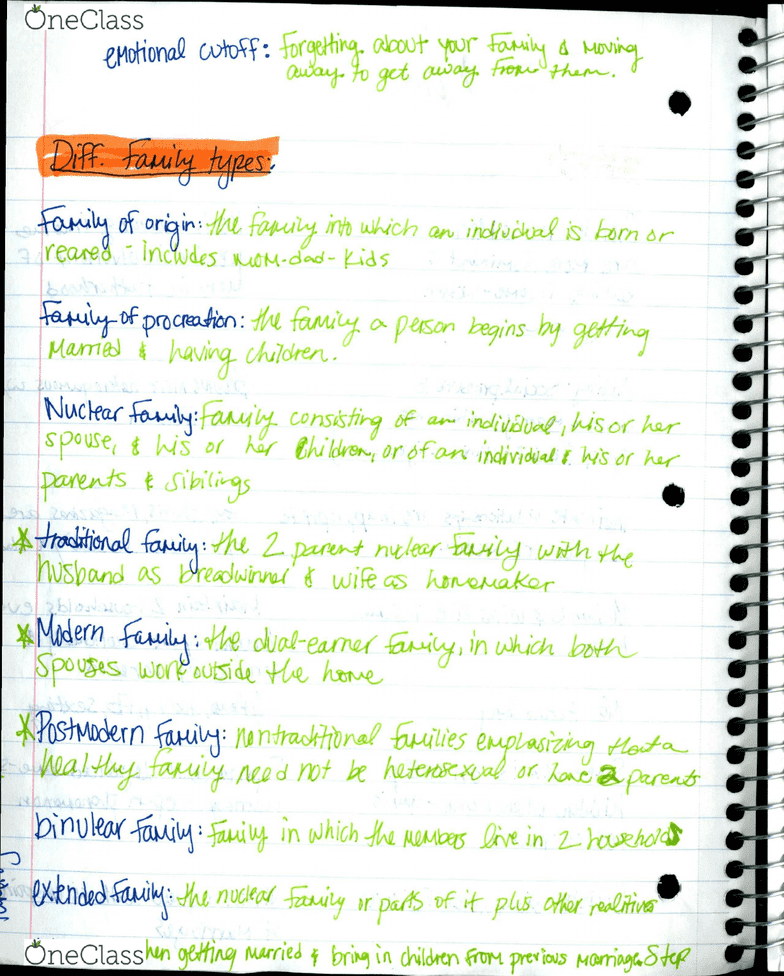 OneClass
emotional cutoff: Forgetting about your Family & Moving
away to get away from them.
Diff. Family types:
Family of origin: the family into which an individual is born or
reared - includes mom-dad-kids
Family of procreation: the family a person begins by getting
Married & having children.
Nuclear Family: Family consisting of an individual, his or her
spouse, & his or her children, or of an individual & his or her
parents & sibilings
traditional family: the 2 parent nuclear family with the
husband as breadwinner & wife as homemaker
Modern Family: the dual-earner family, in which both
spouses work outside the home
Postmodern Family: nontraditional families emphasizing that a
healthy family need not be heterosexual or have 2 parents
binulear Family: Family in which the members live in 2 households
extended Family: the nuclear family or parts of it plus other realitives
OneClass
hen getting married & bring in children from previous marriage. Step